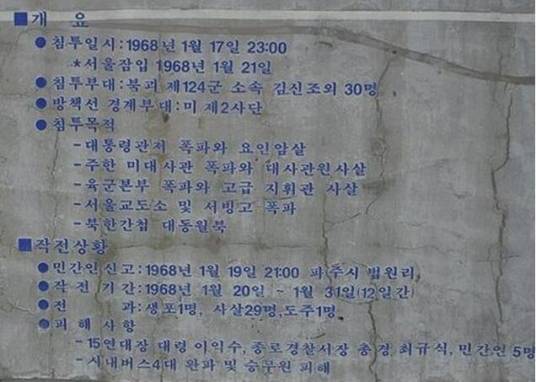 ■개 요
●침투일시:1968년 1월 17일 23:00
★서울잠입 1968년 1월 21일
●침투부대:북괴 제124군 소속 김신조외 30명
●방책선 경계부대:미 제2사단
●침투목적
-대통령관저 폭파와 요인암살
-주한 미대사관 폭파와 대사관원사살
-육군본부 폭파와 고급 지휘관 사살
-서울교도소 및 서빙고 폭파
-북한간첩 대동월북
■작전상황
●민간인신고:1968년 1월 19일 21:00 파주시 법원리
●작전기간:1968년 1월 20일 ~ 1월 31일(12일간)
●전 과:생포1명, 사살29명,도주1명
●피해 사항
-15연대장 대령 이익수,종로경찰서장 총경 최규식,민간인 5명
-시내버스4대 완파 및 승무원 피해